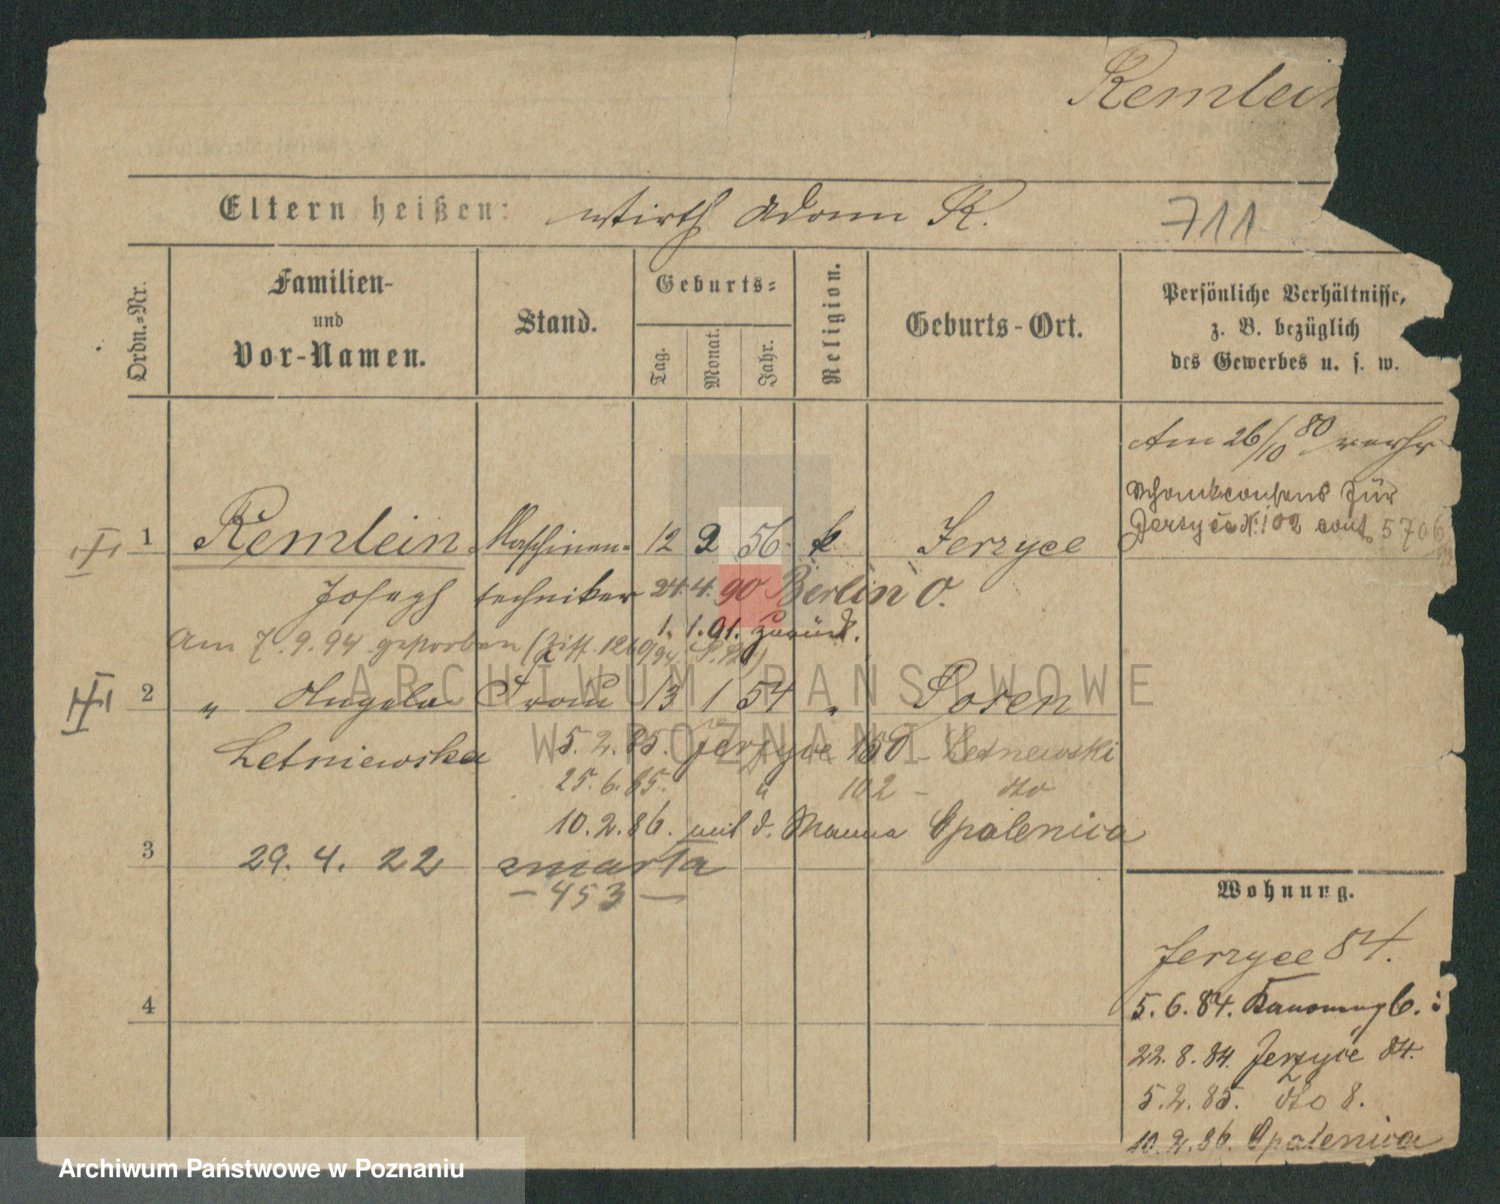 Remlein
Eltern heißen: Wirth Adam R.
711
Ordn.-Nr.
Familien-
und
Vor-Namen.
Stand.
Geburts-
Tag.
Monat.
Jahr.
Religion.
Geburts-Ort.
Persönliche Verhältnisse,
z. B. bezüglich
des Gewerbes u. s. w.
Am 26/10 80
für
1 Remlein Maschinen- 12 2 56 k Jerzyce
Joseph techniker 24.4.90 Berlin O.
1.1.91. zurück.
Am 7.9.94 gestorben
2 " Angela Frau 13 1 54 " Posen
Letniewska 5.2.85. Jerzyce 150 - Letniewski
25.6.85. " 102 - dto
10.2.86. mit d. Manne Opalenica
3 29.4.22 zmarła
- 453 -
4
Wohnung.
Jerzyce 84.
5.6.84.
22.8.84. Jerzyce 84.
5.2.85. dto 8.
10.2.86. Opalenica
ARCHIWUM PAŃSTWOWE
W POZNANIU
Archiwum Państwowe w Poznaniu